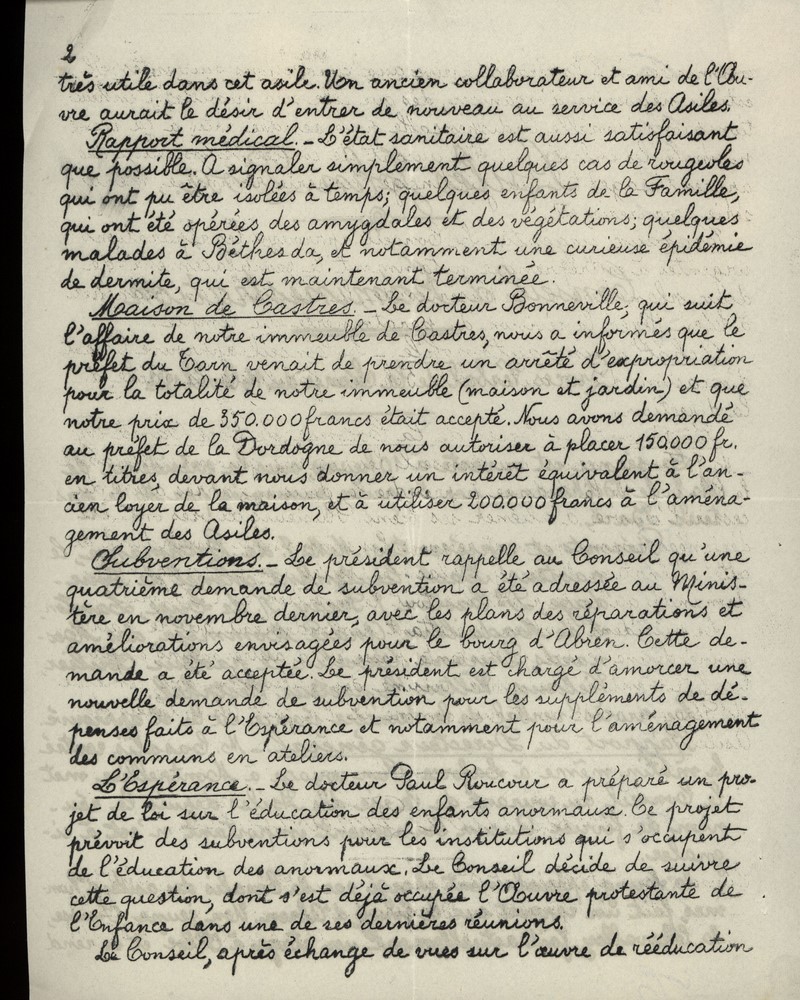 2
très utile dans cet asile. Un ancien collaborateur et ami de l'Œu-
vre aurait le désir d'entrer de nouveau au service des Asiles.
Rapport médical. _ L'état sanitaire est aussi satisfaisant
que possible. A signaler simplement quelques cas de rougeoles
qui ont pu être isolées à temps; quelques enfants de la Famille,
qui ont été opérées des amygdales et des végétations; quelques
malades à Béthesda, et notamment une curieuse épidémie
de dermite, qui est maintenant terminée.
Maison de Castres. _ Le docteur Bonneville, qui suit
l'affaire de notre immeuble de Castres, nous a informés que le
préfet du Tarn venait de prendre un arrêté d'expropriation
pour la totalité de notre immeuble (maison et jardin) et que
notre prix de 350.000 francs était accepté. Nous avons demandé
au préfet de la Dordogne de nous autoriser à placer 150.000 fr.
en titres, devant nous donner un intérêt équivalent à l'an-
cien loyer de la maison, et à utiliser 200.000 francs à l'aména-
gement des Asiles.
Subventions. _ Le président rappelle au Conseil qu'une
quatrième demande de subvention a été adressée au Minis-
tère en novembre dernier, avec les plans des réparations et
améliorations envisagées pour le bourg d'Abren. Cette de-
mande a été acceptée. Le président est chargé d'amorcer une
nouvelle demande de subvention pour les suppléments de dé-
penses faits à l'Espérance et notamment pour l'aménagement
des communs en ateliers.
L'Espérance. _ Le docteur Paul Roucour a préparé un pro-
jet de loi sur l'éducation des enfants anormaux. Ce projet
prévoit des subventions pour les institutions qui s'occupent
de l'éducation des anormaux. Le Conseil décide de suivre
cette question, dont s'est déjà occupée l'Œuvre protestante de
l'Enfance dans une de ses dernières réunions.
Le Conseil, après échange de vues sur l'œuvre de rééducation